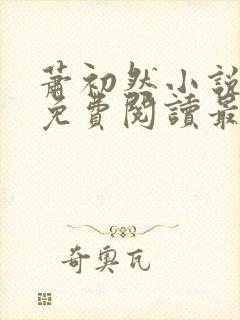 蕭初然小說
免費閱讀最
奇奧瓦